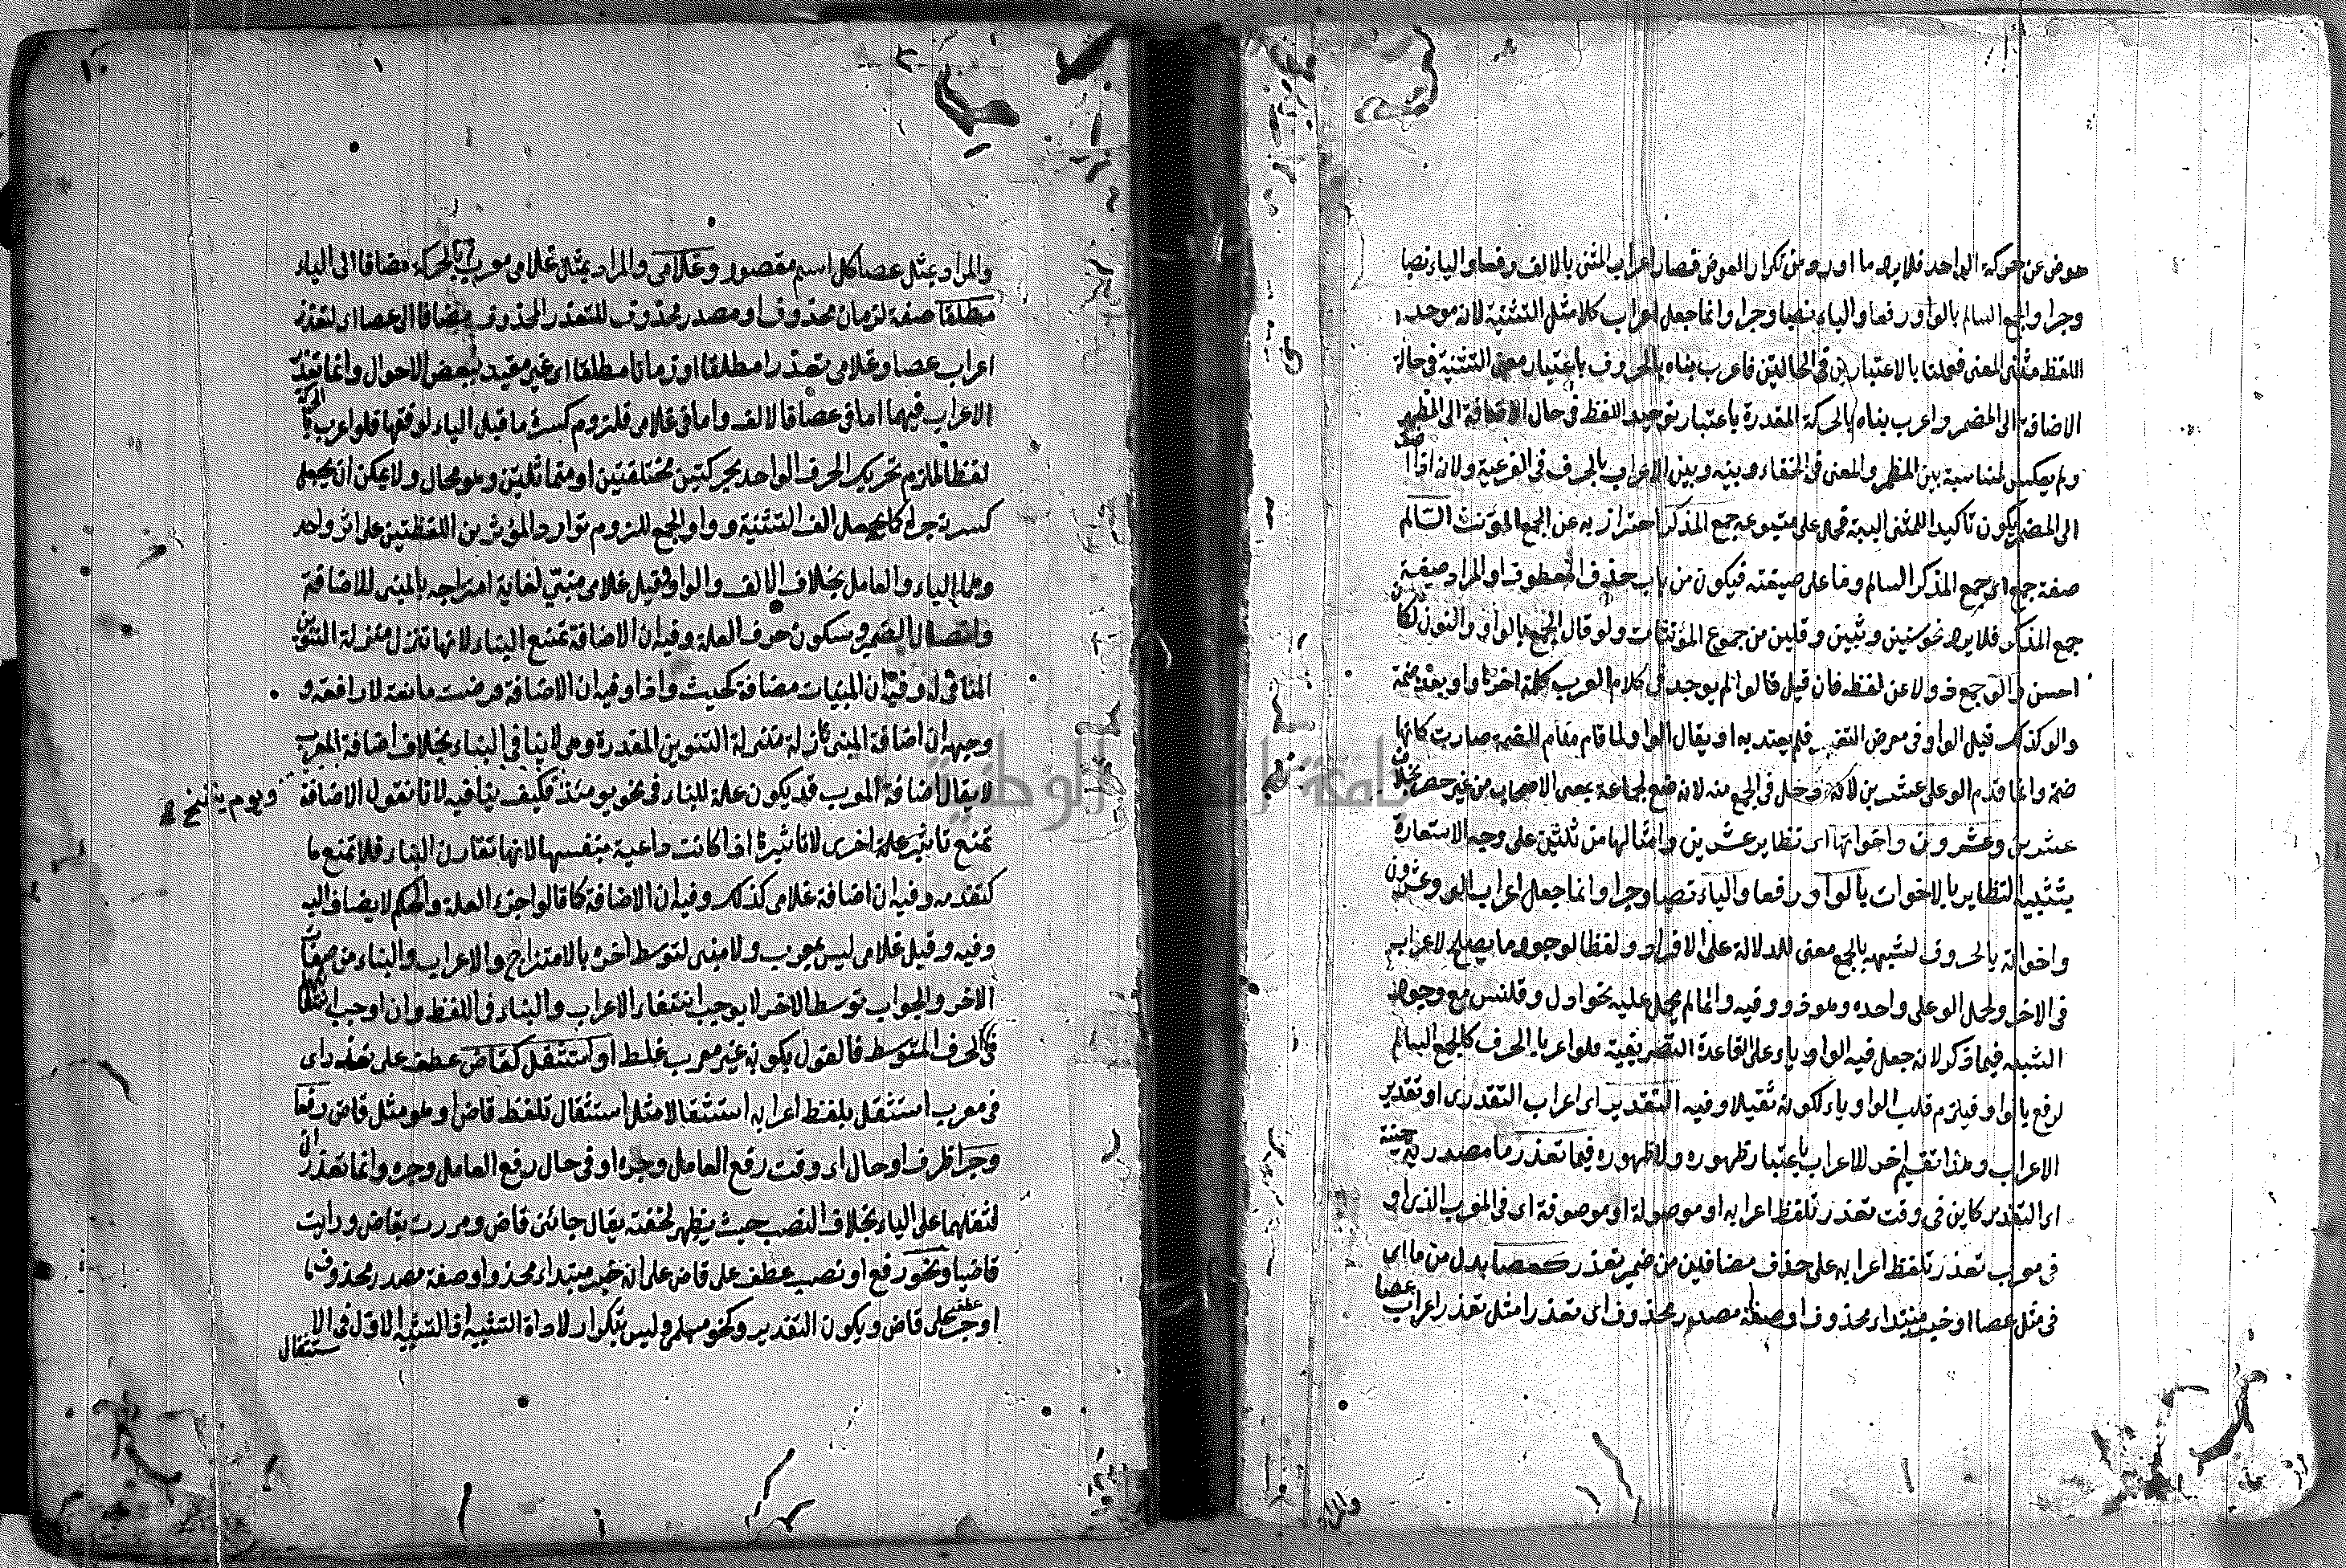 عوض عن حركة الواحد فلا يرد ما اورد من تكرار العوض فصار اعراب المثنى بالالف رفعا والياء نصبا
وجرا والجمع السالم بالواو رفعا والياء نصبا وجرا وانما جعل اعراب كلا مثل التثنية لانه موحد
اللفظ مثنى المعنى فعملنا بالاعتبارين في الحالتين فاعرب بناه بالحروف باعتبار معنى التثنية في حالة
الاضافة الى المضمر واعرب بناه بالحركة المقدرة باعتبار توحيد اللفظ في حال الاضافة الى المظهر
ولم يعكس لمناسبة بين المظهر والمعنى في الخفاء وبينه وبين الاعراب بالحرف في الفرعية ولانه اذا اضيف
الى المضمر يكون تاكيدا للمثنى البتة فحمل على متبوعه جمع المذكر احتراز به عن الجمع المؤنث السالم
صفة جمع اى جمع المذكر السالم وما على صيغته فيكون من باب حذف المعطوف او المراد صيغة
جمع المذكر فلا يرد نحو سنين وثبين وقلين من جموع المؤنثات ولو قال الجمع بالواو والنون لكان
احسن والو جمع ذو لا عن لفظه فان قيل قالوا لم يوجد في كلام العرب كلمة اخرها واو بعد ضمة
والو كذلك قيل الواو في معرض التغير فلم يعتد به او يقال الواو لما قام مقام الضمة صارت كانها
ضمة وانما قدم الو على عشرين لانه دخل في الجمع منه لانه وضع لجماعة بمعنى الاصحاب من غير حصر بخلاف
عشرين وعشرون واخواتها اى نظاير عشرين وامثالها من ثلثين على وجه الاستعارة
بتشبيه النظاير بالاخوات بالواو رفعا والياء نصبا وجرا وانما جعل اعراب الو وعشرون
واخواته بالحروف لشبهه بالجمع معنى للدلالة على الافراد ولفظا لوجود ما يصلح لاعراب
في الاخر ولحمل الو على واحده وهو ذو وفيه وانما لم يحمل عليه نحو ادل وقلنس مع وجود
الشبه فيما ذكر لانه جعل فيه الواو ياء على القاعدة التصريفية فلو اعرب بالحرف كالجمع السالم
لرفع بالواو فيلزم قلب الواو ياء لكونه ثقيلا وفيه التقدير اى اعراب التقدرى او تقدير
الاعراب وهذا تقسيم اخر للاعراب باعتبار ظهوره ولا ظهوره فيما تعذر ما مصدرية حينية
اى التقدير كاين في وقت تعذر تلفظ اعرابه او موصولة او موصوفة اى في المعرب الذى او
في معرب تعذر تلفظ اعرابه على حذف مضافين من ضمير تعذر كعصا بدل من ما اى
في مثل عصا او خبر مبتداء محذوف او صفة مصدر محذوف اى تعذرا مثل تعذر اعراب عصا
والمراد
والمراد بمثل عصا كل اسم مقصور وغلامى والمراد بمثل غلامى معرب بالحركة مضافا الى الياء
مطلقا صفة لزمان محذوف او مصدر محذوف للتعذر المحذوف مضافا الى عصا اى لتعذر
اعراب عصا وغلامى تعذرا مطلقا او زمانا مطلقا اى غير مقيد ببعض الاحوال وانما تعذر
الاعراب فيهما اما في عصا فالالف واما في غلامى فلزوم كسرة ما قبل الياء لوفقها فلو اعرب بالحركة
لفظا لزم تحريك الحرف الواحد بحركتين مختلفتين او متماثلين وهو محال ولا يمكن ان يجعل
كسرته جرا كما يجعل الف التثنية وواو الجمع للزوم توارد المؤثرين اللفظتين على اثر واحد
وهما الياء والعامل بخلاف الالف والواو وقيل غلامى مبنى لغاية امتزاجه بالمبنى للاضافة
واتصال الضمير وسكون حرف العلة وفيه ان الاضافة تمنع البناء لانها تنزل منزلة التنوين
المنافى له وفيه ان المبنيات مضافة كحيث واذا وفيه ان الاضافة عرضت مانعة لا رافعة و
وجهه ان اضافة المبنى نازلة منزلة التنوين المقدرة وهى لا ينافى البناء بخلاف اضافة المعرب
لا يقال اضافة المعرب قد يكون علة للبناء في نحو يومئذ فكيف ينافيه لانا نقول الاضافة
ويوم ينفخ
تمنع تاثير علة اخرى لا تاثيره اذا كانت داعية بنفسها لانها تقارن البناء فلا تمنع ما
كتقدمه وفيه ان اضافة غلامى كذلك وفيه ان الاضافة كما قالوا جزء العلة والحكم لا يضاف اليه
وفيه وقيل غلامى ليس بمعرب ولا مبنى لتوسط اخره بالامتزاج والاعراب والبناء من صفات
الاخر والجواب توسط الاخر لا يوجب انتفاء الاعراب والبناء في اللفظ وان اوجب انتفائهما
في الحرف المتوسط فالقول بكونه غير معرب غلط او استثقل كقاض عطف على تعذر اى
في معرب استثقل بلفظ اعرابه استثقالا مثل استثقال تلفظ قاض او هو مثل قاض رفعا
وجرا ظرف او حال اى وقت رفع العامل وجره او في حال رفع العامل وجره وانما تعذرا
لثقلهما على الياء بخلاف النصب حيث يظهر لخفته يقال جائنى قاض ومررت بقاض ورايت
قاضيا ونحو رفع او نصب عطف على قاض على انه خبر مبتداء محذوف او صفة مصدر محذوف
او جر عطف على قاض ويكون التقدير وكنحو مسلمى وليس بتكرار لاداة التشبيه اذ التشبيه الاول في الا
ستثقال